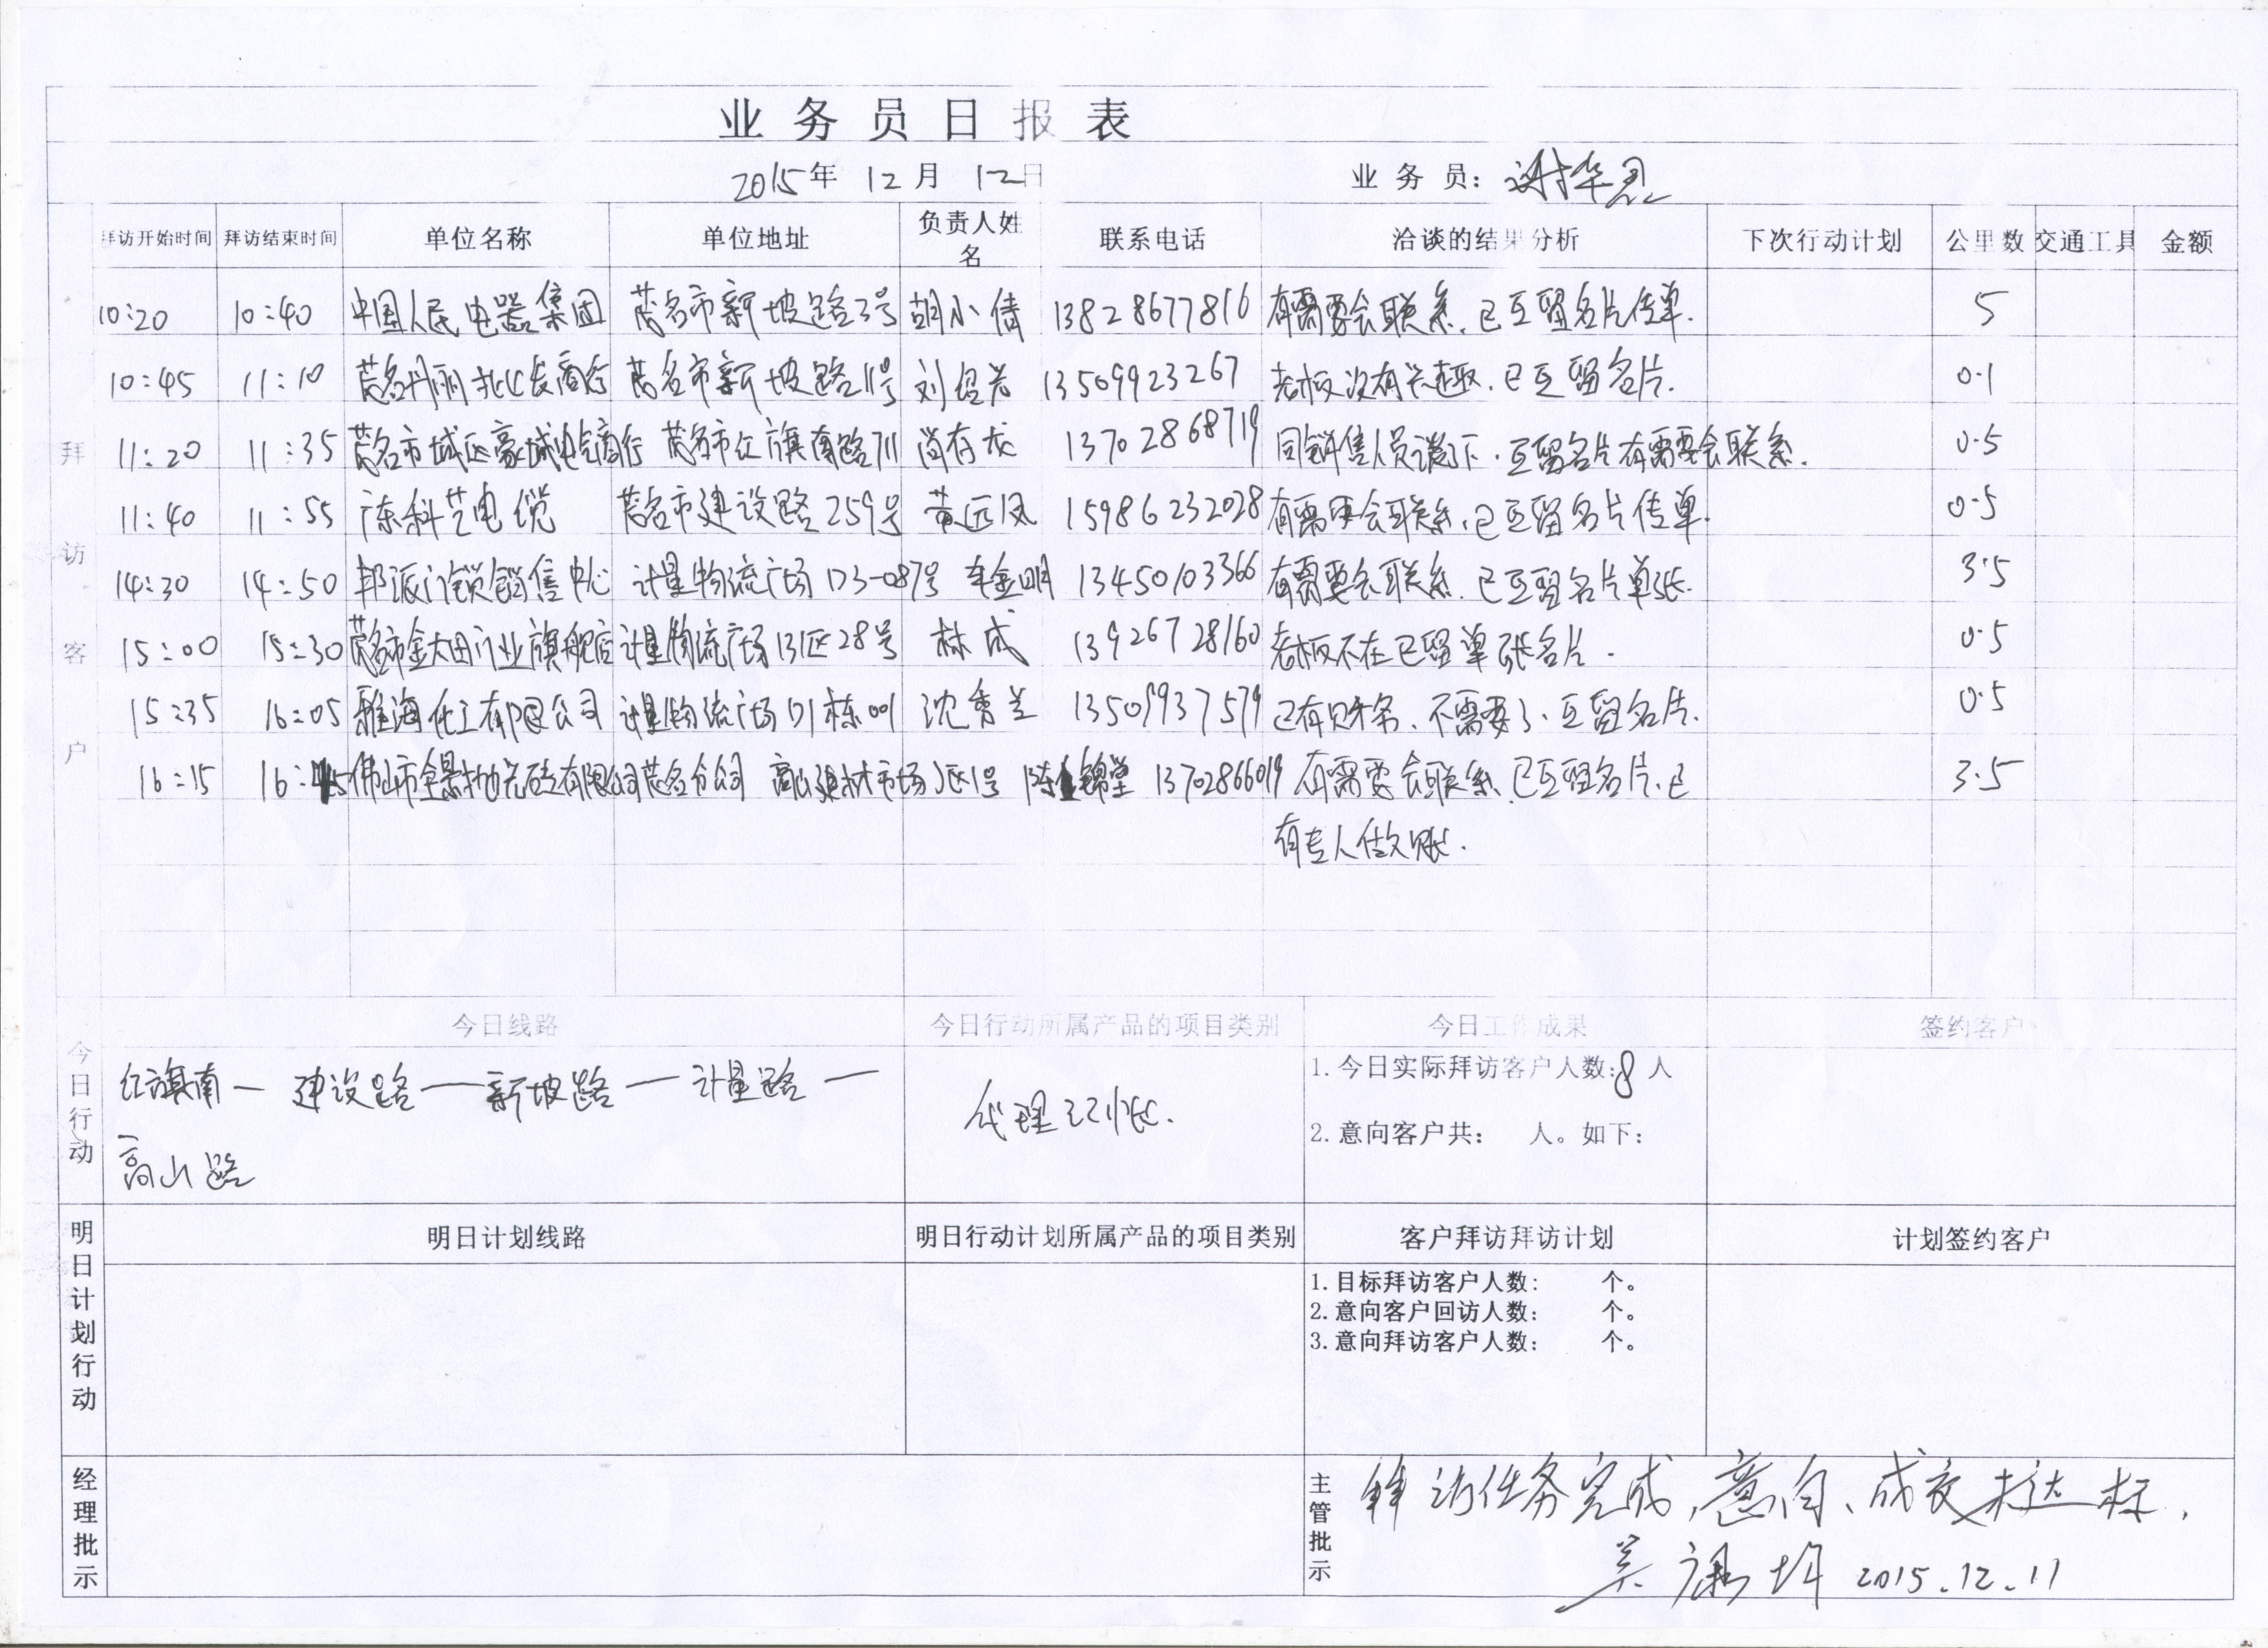 业务员日报表
2015年 12月 12日 业务员：谢华
拜访开始时间 拜访结束时间 单位名称 单位地址 负责人姓名 联系电话 洽谈的结果分析 下次行动计划 公里数 交通工具 金额
拜访客户
10:20 10:40 中国人民电器集团 茂名市新坡路3号 胡小倩 13828677816 有需要会联系.已互留名片传单. 5
10:45 11:10 茂名丹丽 商行 茂名市新坡路11号 刘 13509923267 老板没有兴趣.已互留名片. 0.1
11:20 11:35 茂名市城区豪城电气商行 茂名市红旗南路711 尚存龙 13702868719 同销售人员谈了下.互留名片有需要会联系. 0.5
11:40 11:55 广东科艺电缆 茂名市建设路259号 黄远凤 15986232028 有需要会联系.已互留名片传单. 0.5
14:30 14:50 邦派门锁销售中心 计星物流广场 D3-087号 车金明 13450103366 有需要会联系.已互留名片单张. 3.5
15:00 15:30 茂名市金大田门业旗舰店 计星物流广场B1区28号 林成 13926728160 老板不在已留单张名片. 0.5
15:35 16:05 雅海化工有限公司 计星物流广场D1栋001 沈秀兰 13509937579 已有财务、不需要了、互留名片. 0.5
16:15 16:45 佛山市全景抛光砖有限公司茂名分公司 高山建材市场J区1号 陈锦堂 13702866019 有需要会联系、已互留名片.已 3.5
有专人做账.
今日行动
今日线路 今日行动所属产品的项目类别 今日工作成果 签约客户
红旗南— 建设路—新坡路—计星路—
高山路
代理记账.
1.今日实际拜访客户人数:8人
2.意向客户共： 人。如下：
明日计划行动
明日计划线路 明日行动计划所属产品的项目类别 客户拜访拜访计划 计划签约客户
1.目标拜访客户人数： 个。
2.意向客户回访人数： 个。
3.意向拜访客户人数： 个。
经理批示
主管批示
拜访任务完成,意向、成交未达标.
吴 2015.12.11